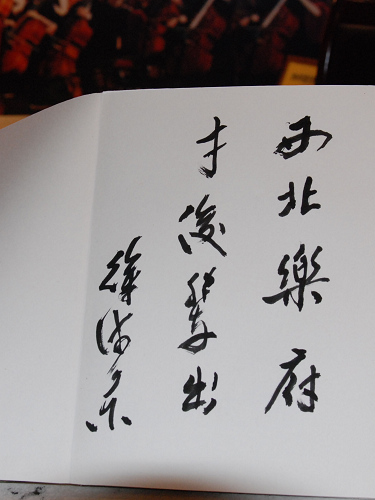 西北樂府
才俊輩出
徐沛东